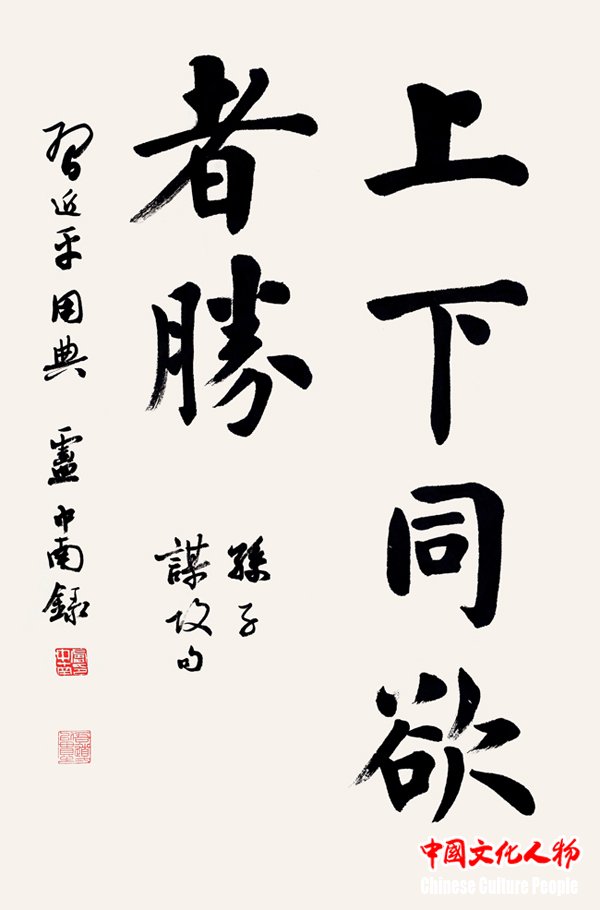 上下同欲
者勝
孫子
謀攻句
習近平用典 盧中南錄
中國文化人物
Chinese Culture People